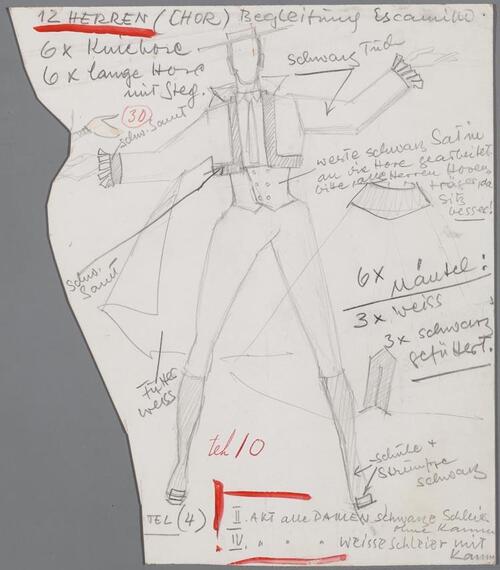 12 HERREN (CHOR) Begleitung Escamillo.
6 x Kniehose
6 x lange Hose
mit Steg.
schwarz Tuch
30
schw. Samt
weste schwarz Satin
an die Hose gearbeitet
bitte Herren Hosen
träger, da
Sitz
besser!
schw.
Samt
6x Mäntel:
3 x weiss
3 x schwarz
gefüttert.
Futter
weiss
teh 10
schuhe +
Strümpfe
schwarz
TEL (4)
II. AKT alle DAMEN schwarze Schleier
ohne Kamm
IV. " " " weisse schleier mit
Kamm